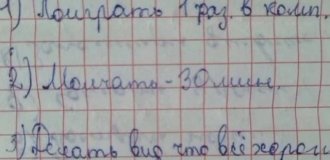 1) Поиграть 1 раз в комп.
2) Молчать - 30 мин.
3) Делать вид что всё хорош